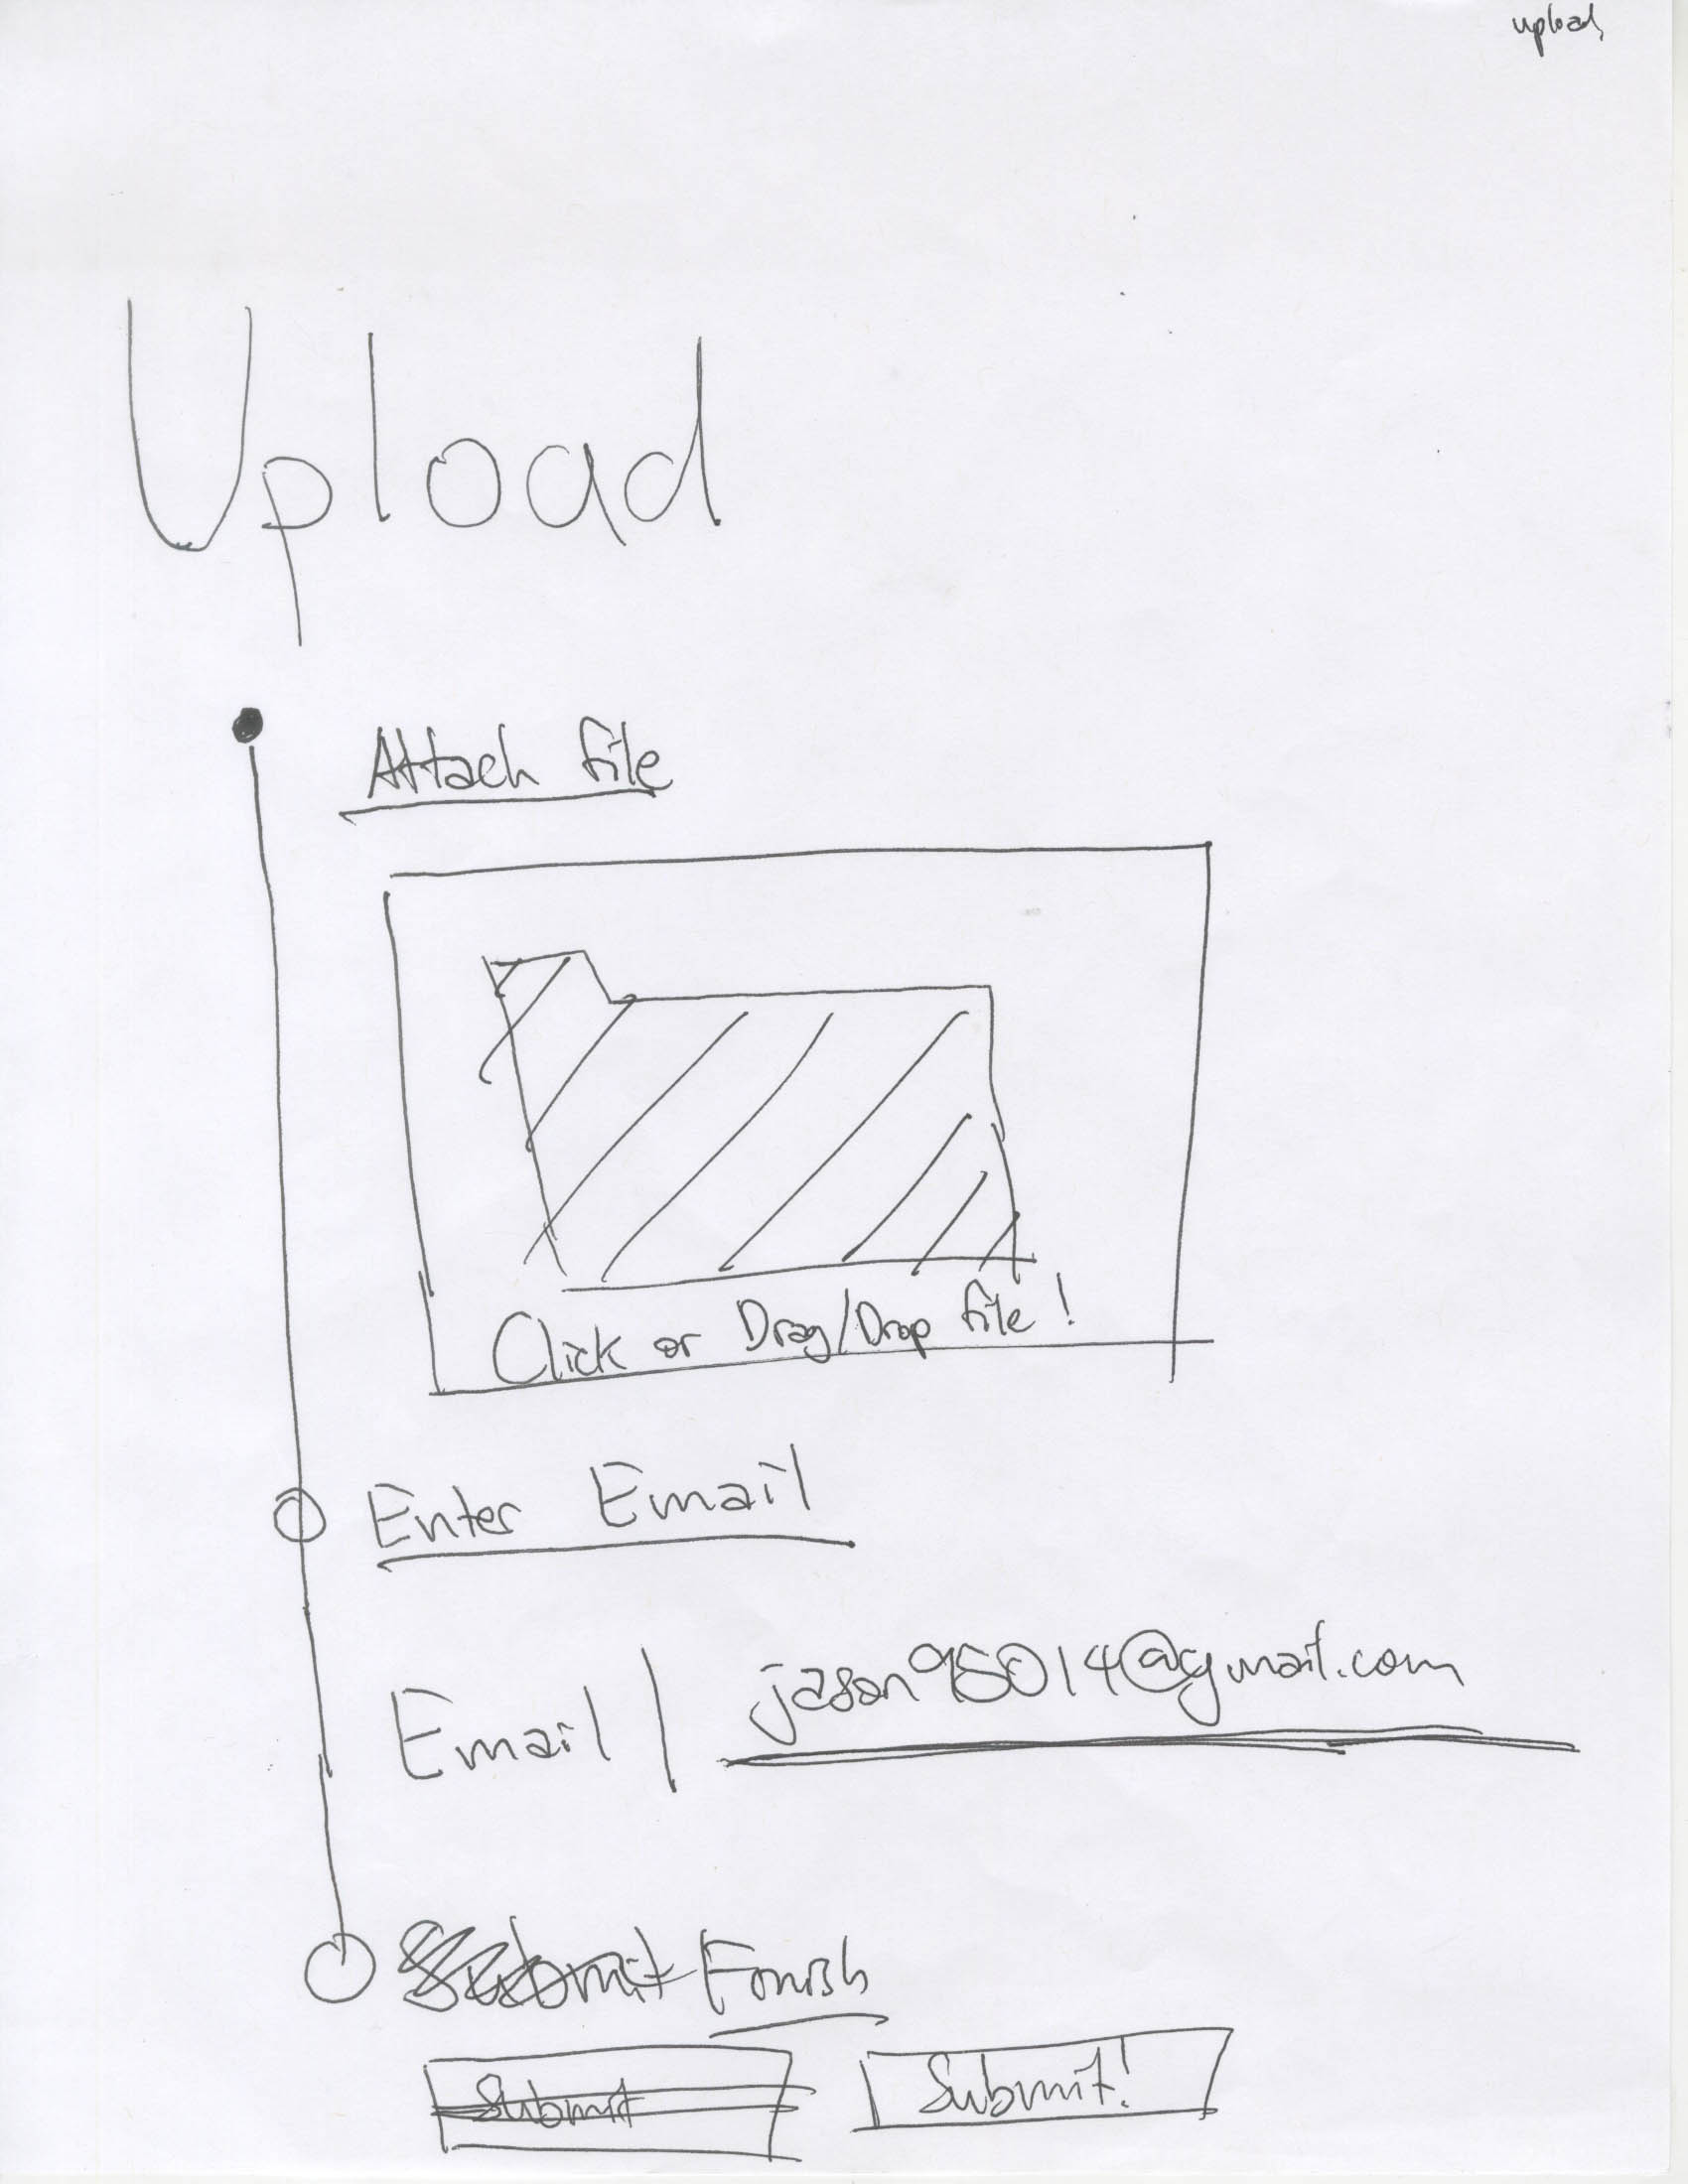 upload
Upload
Attach file
Click or Drag/Drop file!
Enter Email
Email | jason95014@gmail.com
Submit Finish
Submit Submit!